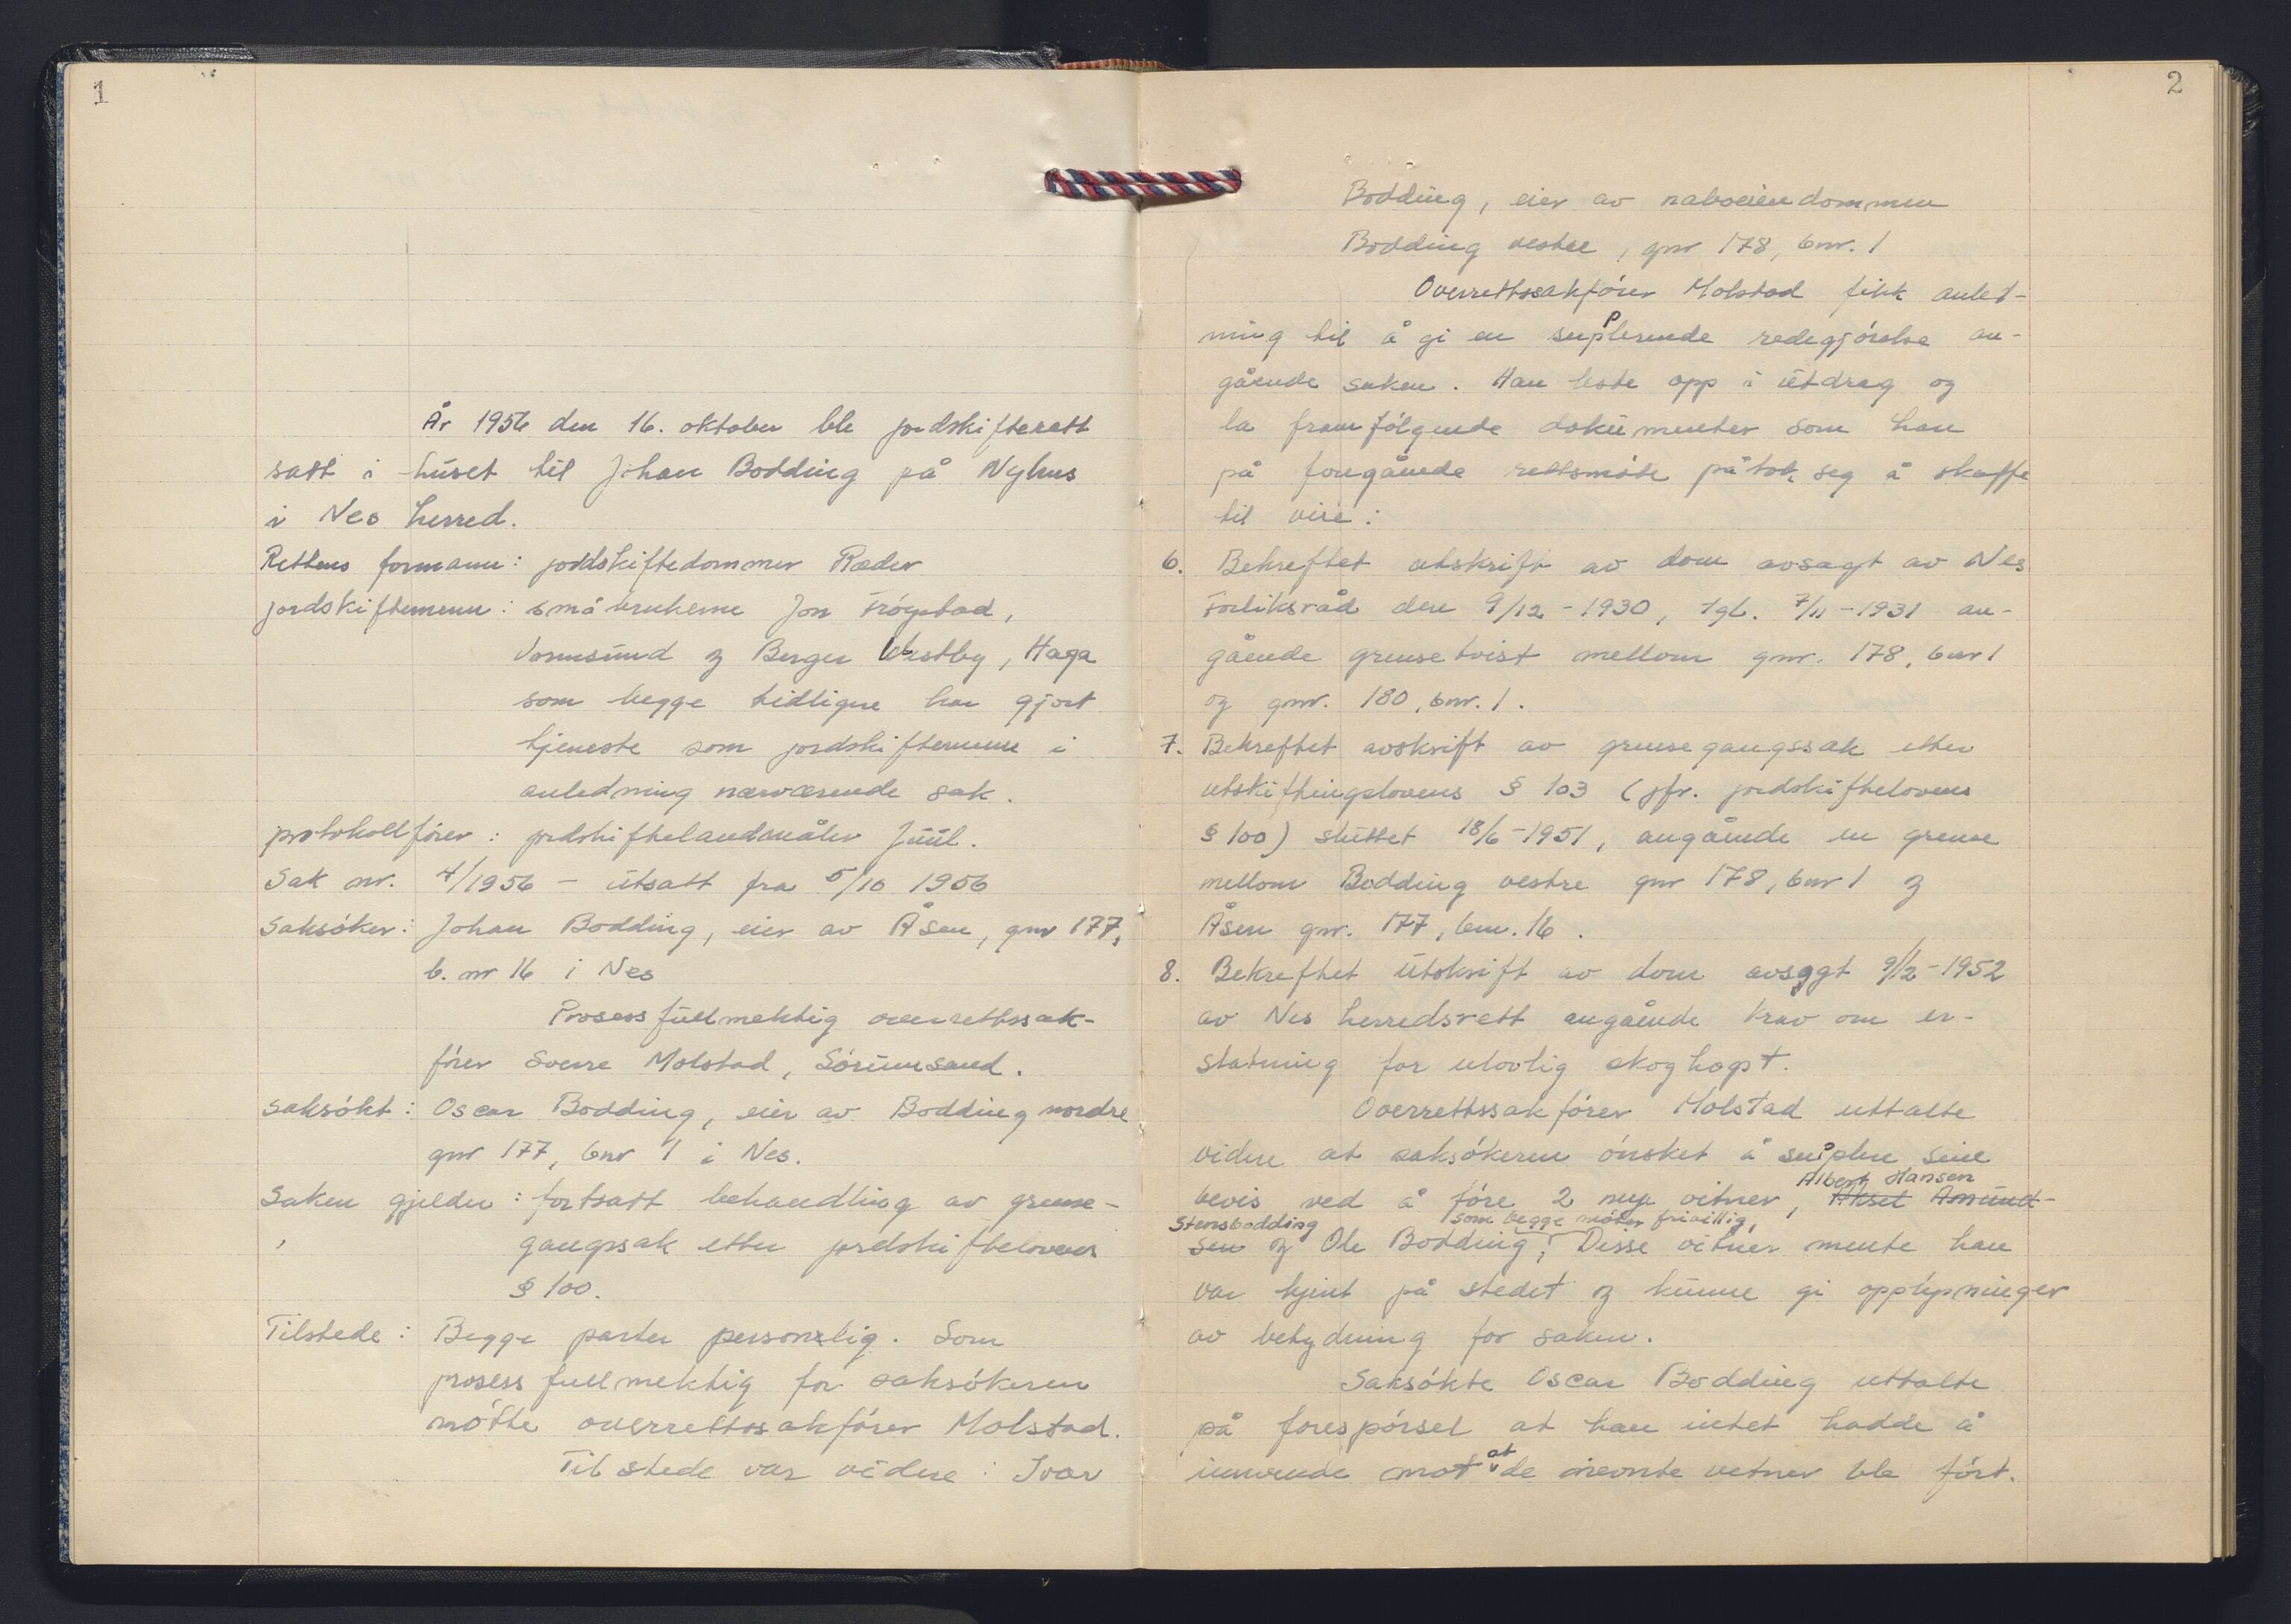 1
År 1956 den 16. oktober ble jordskifterett
satt i huset til Johan Bodding på Nyhus
i Nes herred.
Rettens formann: jordskiftedommer Ræder
jordskiftemenn: småbrukerne Jon Frogstad,
Vormsund og Berger Vestby, Haga
som begge tidligere har gjort
tjeneste som jordskiftemenn i
anledning nærværende sak.
protokollfører: jordskiftelandmåler Juul.
Sak nr. 4/1956 – utsatt fra 5/10 1956
Saksøker: Johan Bodding, eier av Åsen, gnr 177,
b. nr 16 i Nes
Prosessfullmektig overrettssak-
fører Sverre Molstad, Sørumsand.
saksøkt: Oscar Bodding, eier av Bodding nordre
gnr 177, bnr 1 i Nes.
Saken gjelder: fortsatt behandling av grense-
gangssak etter jordskiftelovens
§ 100.
Tilstede: Begge parter personlig. Som
prosessfullmektig for saksøkeren
møtte overrettssakfører Molstad.
Tilstede var videre: Ivar
2
Bodding, eier av naboeiendommen
Bodding vestre, gnr 178, bnr. 1
Overrettssakfører Molstad fikk anled-
ning til å gi en supplerende redegjørelse an-
gående saken. Han leste opp i utdrag og
la fram følgende dokumenter som han
på foregående rettsmøte påtok seg å skaffe
til veie:
6. Bekreftet utskrift av dom avsagt av Nes
Forliksråd den 9/12 - 1930, tgl. 7/11 - 1931 an-
gående grensetvist mellom gnr. 178, bnr 1
og gnr. 180, bnr. 1.
7. Bekreftet avskrift av grensegangssak etter
utskiftningslovens § 103 (jfr. jordskiftelovens
§ 100) sluttet 18/6 - 1951, angående en grense
mellom Bodding vestre gnr 178, bnr 1 og
Åsen gnr. 177, bnr. 16.
8. Bekreftet utskrift av dom avsagt 9/2 - 1952
av Nes herredsrett angående krav om er-
statning for ulovlig skoghogst.
Overrettssakfører Molstad uttalte
videre at saksøkeren ønsket å supplere sine
Albert Hansen
bevis ved å føre 2 nye vitner, Aksel Amund-
Stensbodding som begge møter frivillig,
sen og Ole Bodding; Disse vitner mente han
var kjent på stedet og kunne gi opplysninger
av betydning for saken.
Saksøkte Oscar Bodding uttalte
på forespørsel at han intet hadde å
at
innvende mot de nevnte vitner ble ført.